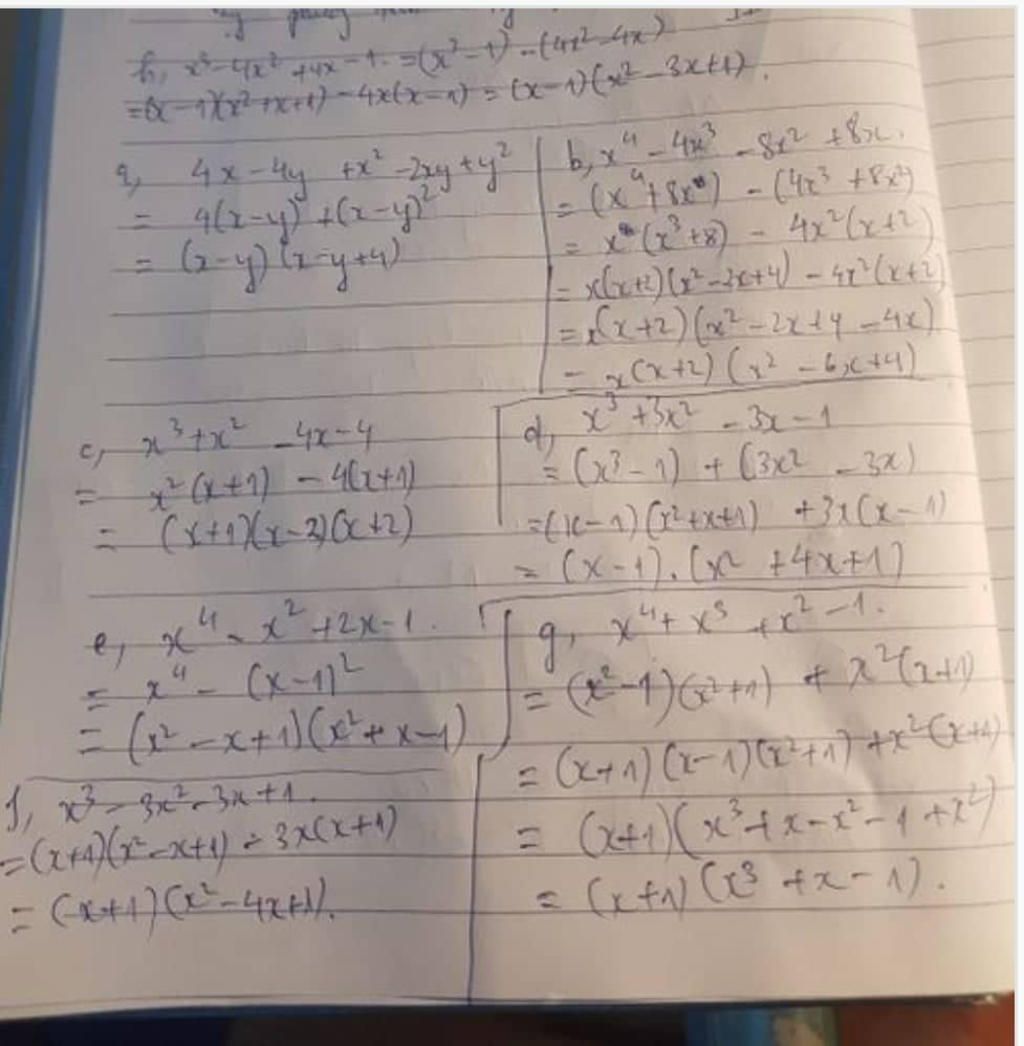 h, x³ - 4x² + 4x - 1 = (x³ - 1) - (4x² - 4x)
= (x - 1)(x² + x + 1) - 4x(x - 1) = (x - 1)(x² - 3x + 1).
a, 4x - 4y + x² - 2xy + y²
= 4(x - y) + (x - y)²
= (x - y)(x - y + 4)
b, x⁴ - 4x³ - 8x² + 8x.
= (x⁴ + 8x) - (4x³ + 8x²)
= x(x³ + 8) - 4x²(x + 2)
= x(x + 2)(x² - 2x + 4) - 4x²(x + 2)
= x(x + 2)(x² - 2x + 4 - 4x)
= x(x + 2)(x² - 6x + 4)
c, x³ + x² - 4x - 4
= x²(x + 1) - 4(x + 1)
= (x + 1)(x - 2)(x + 2)
d, x³ + 3x² - 3x - 1
= (x³ - 1) + (3x² - 3x)
= (x - 1)(x² + x + 1) + 3x(x - 1)
= (x - 1).(x² + 4x + 1)
e, x⁴ - x² + 2x - 1.
= x⁴ - (x - 1)²
= (x² - x + 1)(x² + x - 1)
f, x³ - 3x² - 3x + 1.
= (x + 1)(x² - x + 1) - 3x(x + 1)
= (x + 1)(x² - 4x + 1).
g, x⁴ + x³ + x² - 1.
= (x² - 1)(x² + 1) + x²(x + 1)
= (x + 1)(x - 1)(x² + 1) + x²(x + 1)
= (x + 1)(x³ + x - x² - 1 + x²)
= (x + 1)(x³ + x - 1).